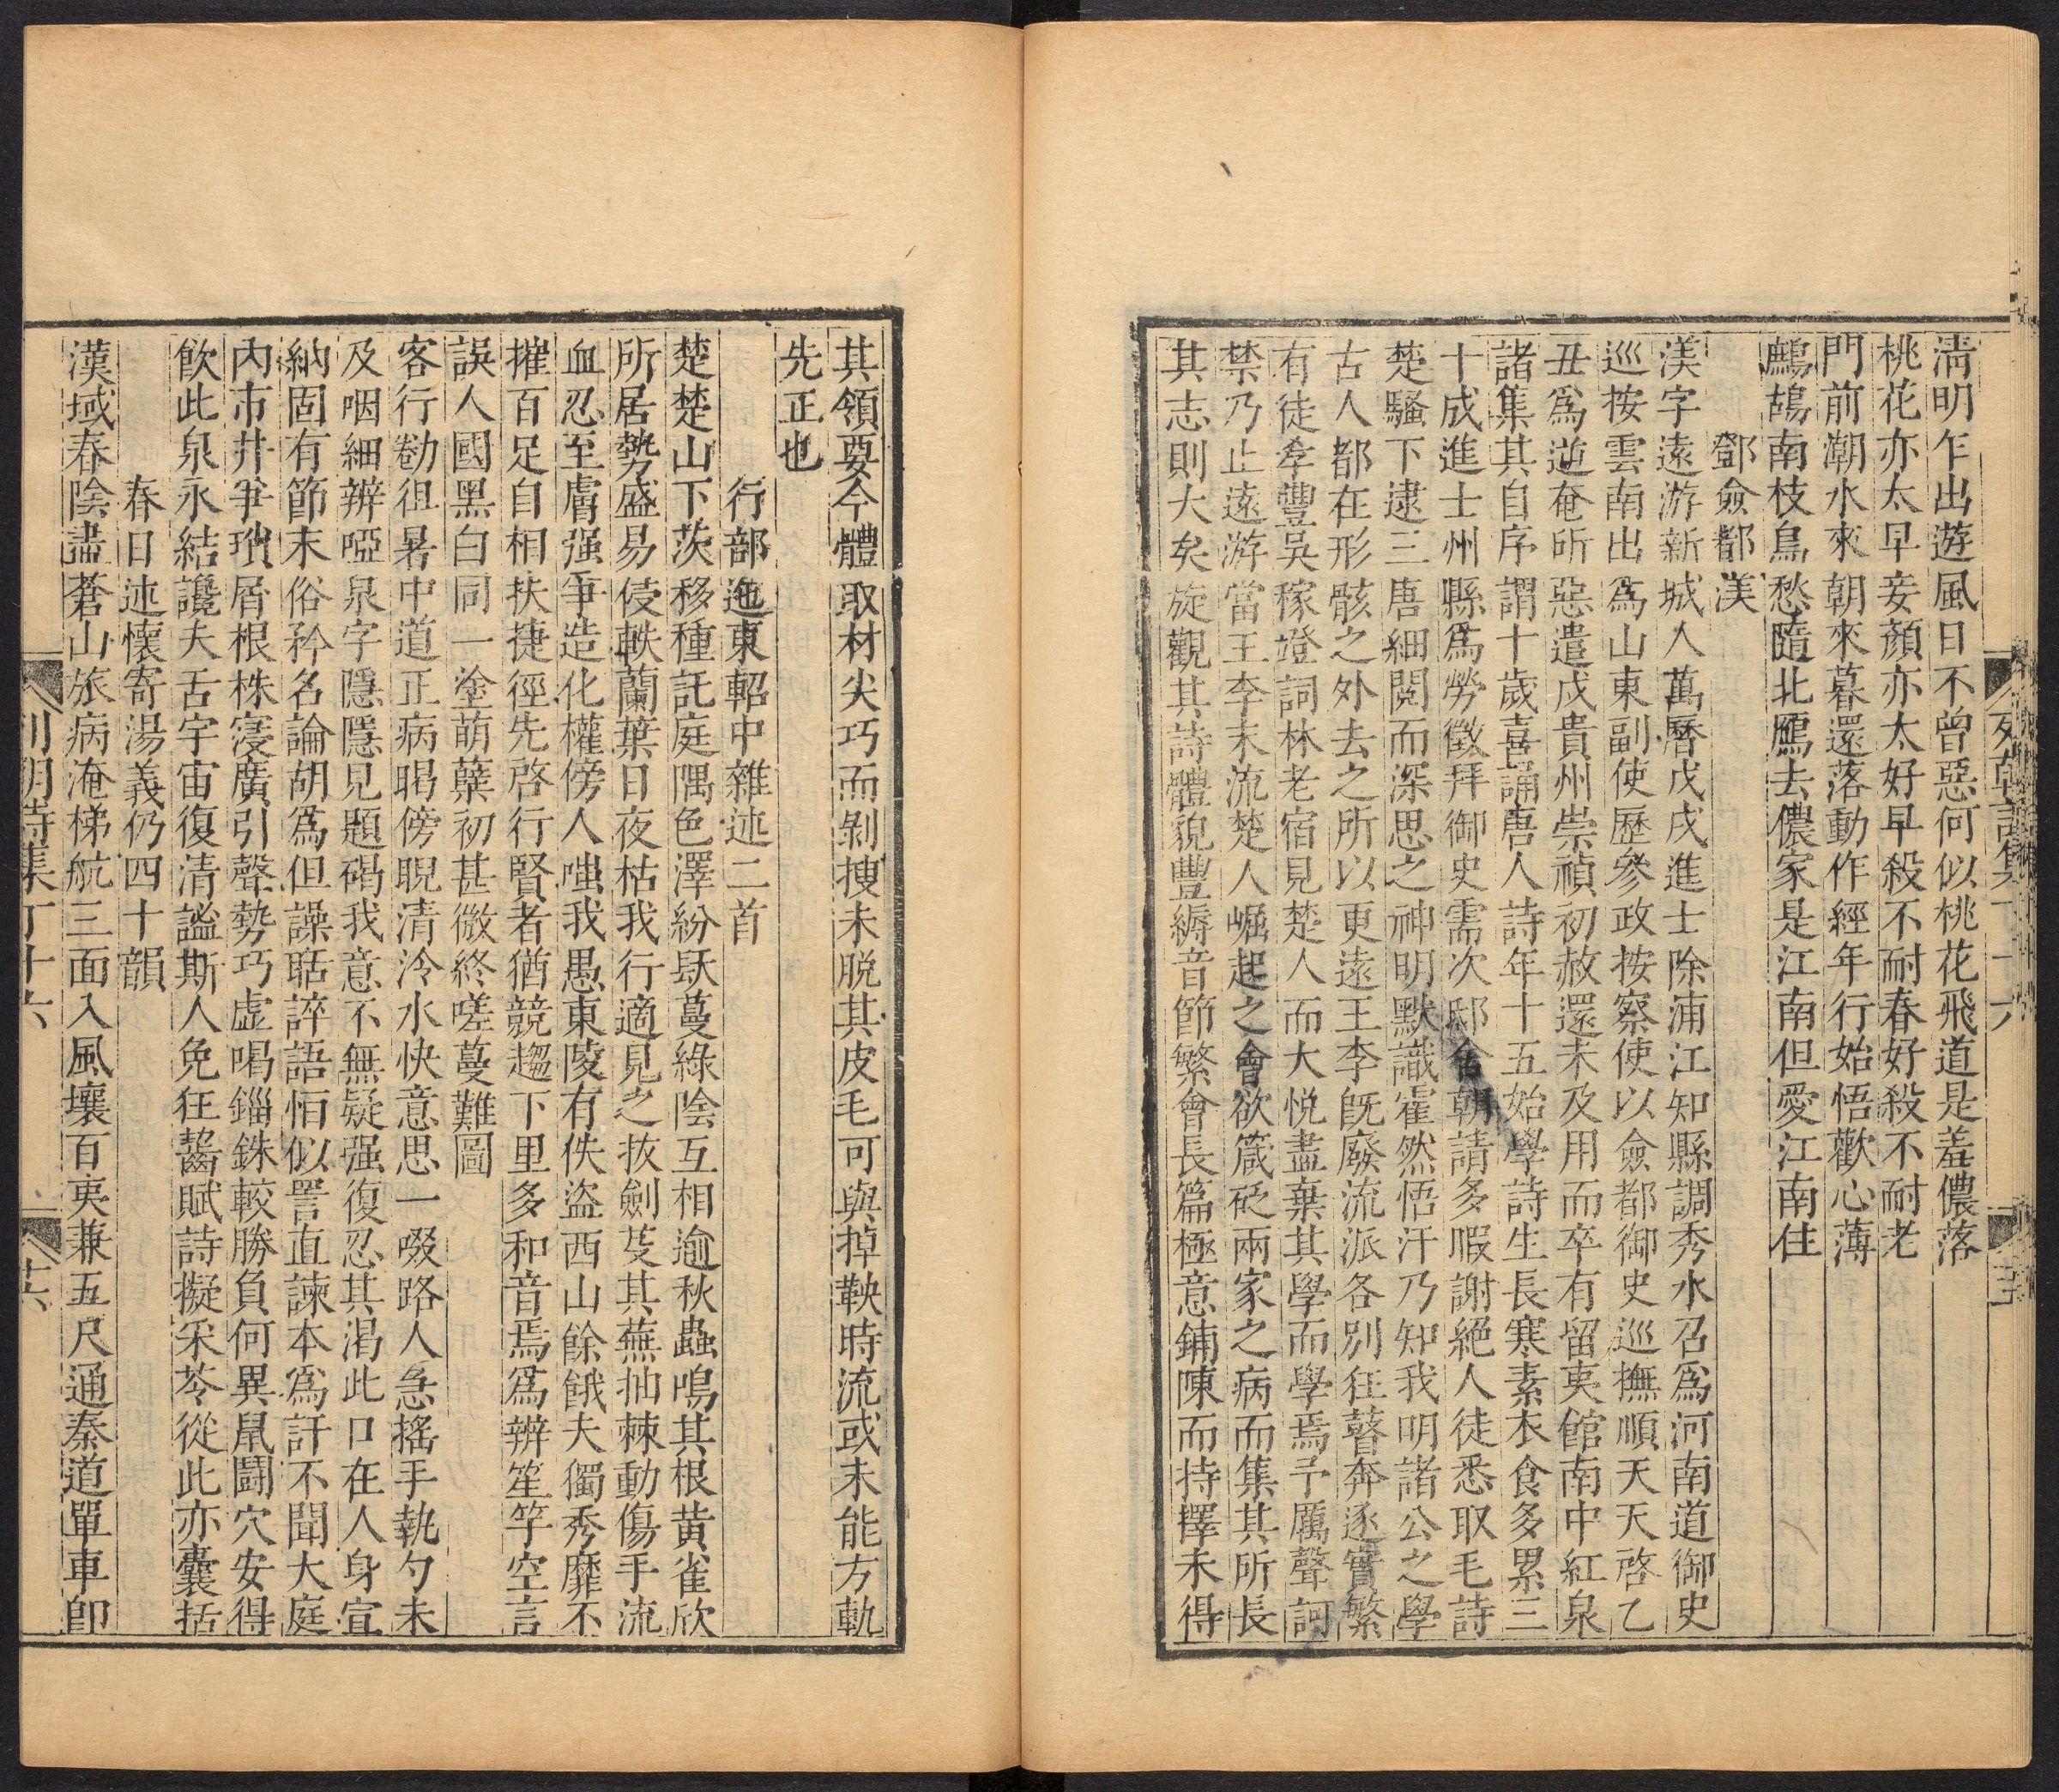 列朝詩集丁十六
清明乍出遊風日不曾惡何似桃花飛道是羞儂落
桃花亦太早妾顏亦太好早殺不耐春好殺不耐老
門前潮水來朝來暮還落動作經年行始悟歡心薄
鷓鴣南枝鳥愁隨北鴈去儂家是江南但愛江南住
鄧僉都渼
渼字遠游新城人萬曆戊戌進士除浦江知縣調秀水召爲河南道御史
巡按雲南出爲山東副使歷參政按察使以僉都御史巡撫順天天啓乙
丑爲逆奄所惡遣戍貴州崇禎初赦還未及用而卒有留夷館南中紅泉
諸集其自序謂十歲喜誦唐人詩年十五始學詩生長寒素衣食多累三
十成進士州縣爲勞徵拜御史需次邸舍朝請多暇謝絕人徒悉取毛詩
楚騷下逮三唐細閱而深思之神明默識霍然悟汗乃知我明諸公之學
古人都在形骸之外去之所以更遠王李旣廢流派各別狂瞽奔逐實繁
有徒牽豐吳稼𥪡詞林老宿見楚人而大悅盡棄其學而學焉予厲聲訶
禁乃止遠游當王李末流楚人崛起之會欲箴砭兩家之病而集其所長
其志則大矣旋觀其詩體貌豐縟音節繁會長篇極意鋪陳而持擇未得
其領要今體取材尖巧而剝搜未脫其皮毛可與掉鞅時流或未能方軌
先正也
行部迤東軺中雜述二首
楚楚山下茨移種託庭隅色澤紛㲋蔓綠陰互相逾秋蟲鳴其根黃雀欣
所居勢盛易侵軼蘭葉日夜枯我行適見之拔劍芟其蕪抽棘動傷手流
血忍至膚强爭造化權傍人嗤我愚東陵有佚盜西山餘餓夫獨秀靡不
摧百足自相扶捷徑先啓行賢者猶競趨下里多和音焉爲辨笙竽空言
誤人國黑白同一塗萌蘖初甚微終嗟蔓難圖
客行勌徂暑中道正病暍傍睨清泠水快意思一啜路人急搖手執勺未
及咽細辨啞泉字隱隱見題碣我意不無疑强復忍其渴此口在人身宜
納固有節末俗矜名論胡爲但譟聒誶語怕似詈直諫本爲訐不聞大庭
內市井爭瑣屑根株寖廣引聲勢巧虛喝錙銖較勝負何異鼠鬭穴安得
飲此泉永結讒夫舌宇宙復清謐斯人免狂齧賦詩擬采苓從此亦囊括
春日述懷寄湯義仍四十韻
漢域春陰盡蒼山旅病淹梯航三面入風壤百夷兼五尺通秦道單車卽
列朝詩集丁十六